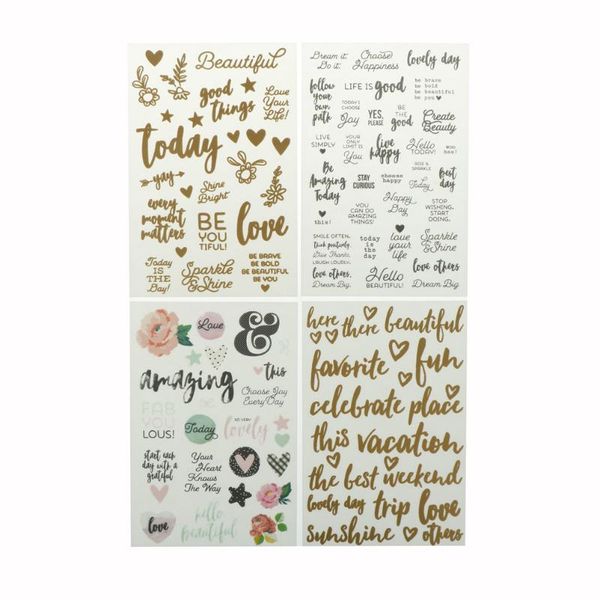 Beautiful
good
things
Love
Your
Life!
today
yay
Shine
Bright
every
moment
matters
BE
YOU
TIFUL!
love
Today
IS THE
Day!
Sparkle
& Shine
BE BRAVE
BE BOLD
BE BEAUTIFUL
BE YOU
Dream it.
Do it.
Choose
Happiness
lovely day
follow
your
own
path
LIFE IS good
be brave
be bold
be beautiful
be you
TODAY I
CHOOSE
Joy
YES,
PLEASE
BE
THE
good
Create
Beauty
LIVE
SIMPLY
YOUR
ONLY
LIMIT IS
You
live
happy
Hello
TODAY!
Be
Amazing
Today
STAY
CURIOUS
choose
happy
best
day
this!
YOU
CAN DO
AMAZING
THINGS!
Happy
Day
STOP
WISHING.
START
DOING.
SMILE OFTEN.
think positively.
Give Thanks.
LAUGH LOUDLY.
love others.
Dream Big.
today
is the
day
love
your
life
Sparkle
& Shine
Hello
BEAUTIFUL!
love others
Dream Big.
Love
&
amazing
this
Choose Joy
Every Day
FAB
YOU
LOUS!
Today
lovely
start each
day with a
grateful
Your
Heart
Knows
The Way
love
hello
beautiful
here there beautiful
favorite fun
celebrate place
this vacation
the best weekend
lovely day trip love
sunshine others